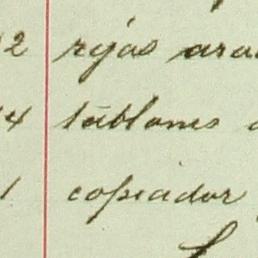 2 rejas ara
4 tablones
1 copiador